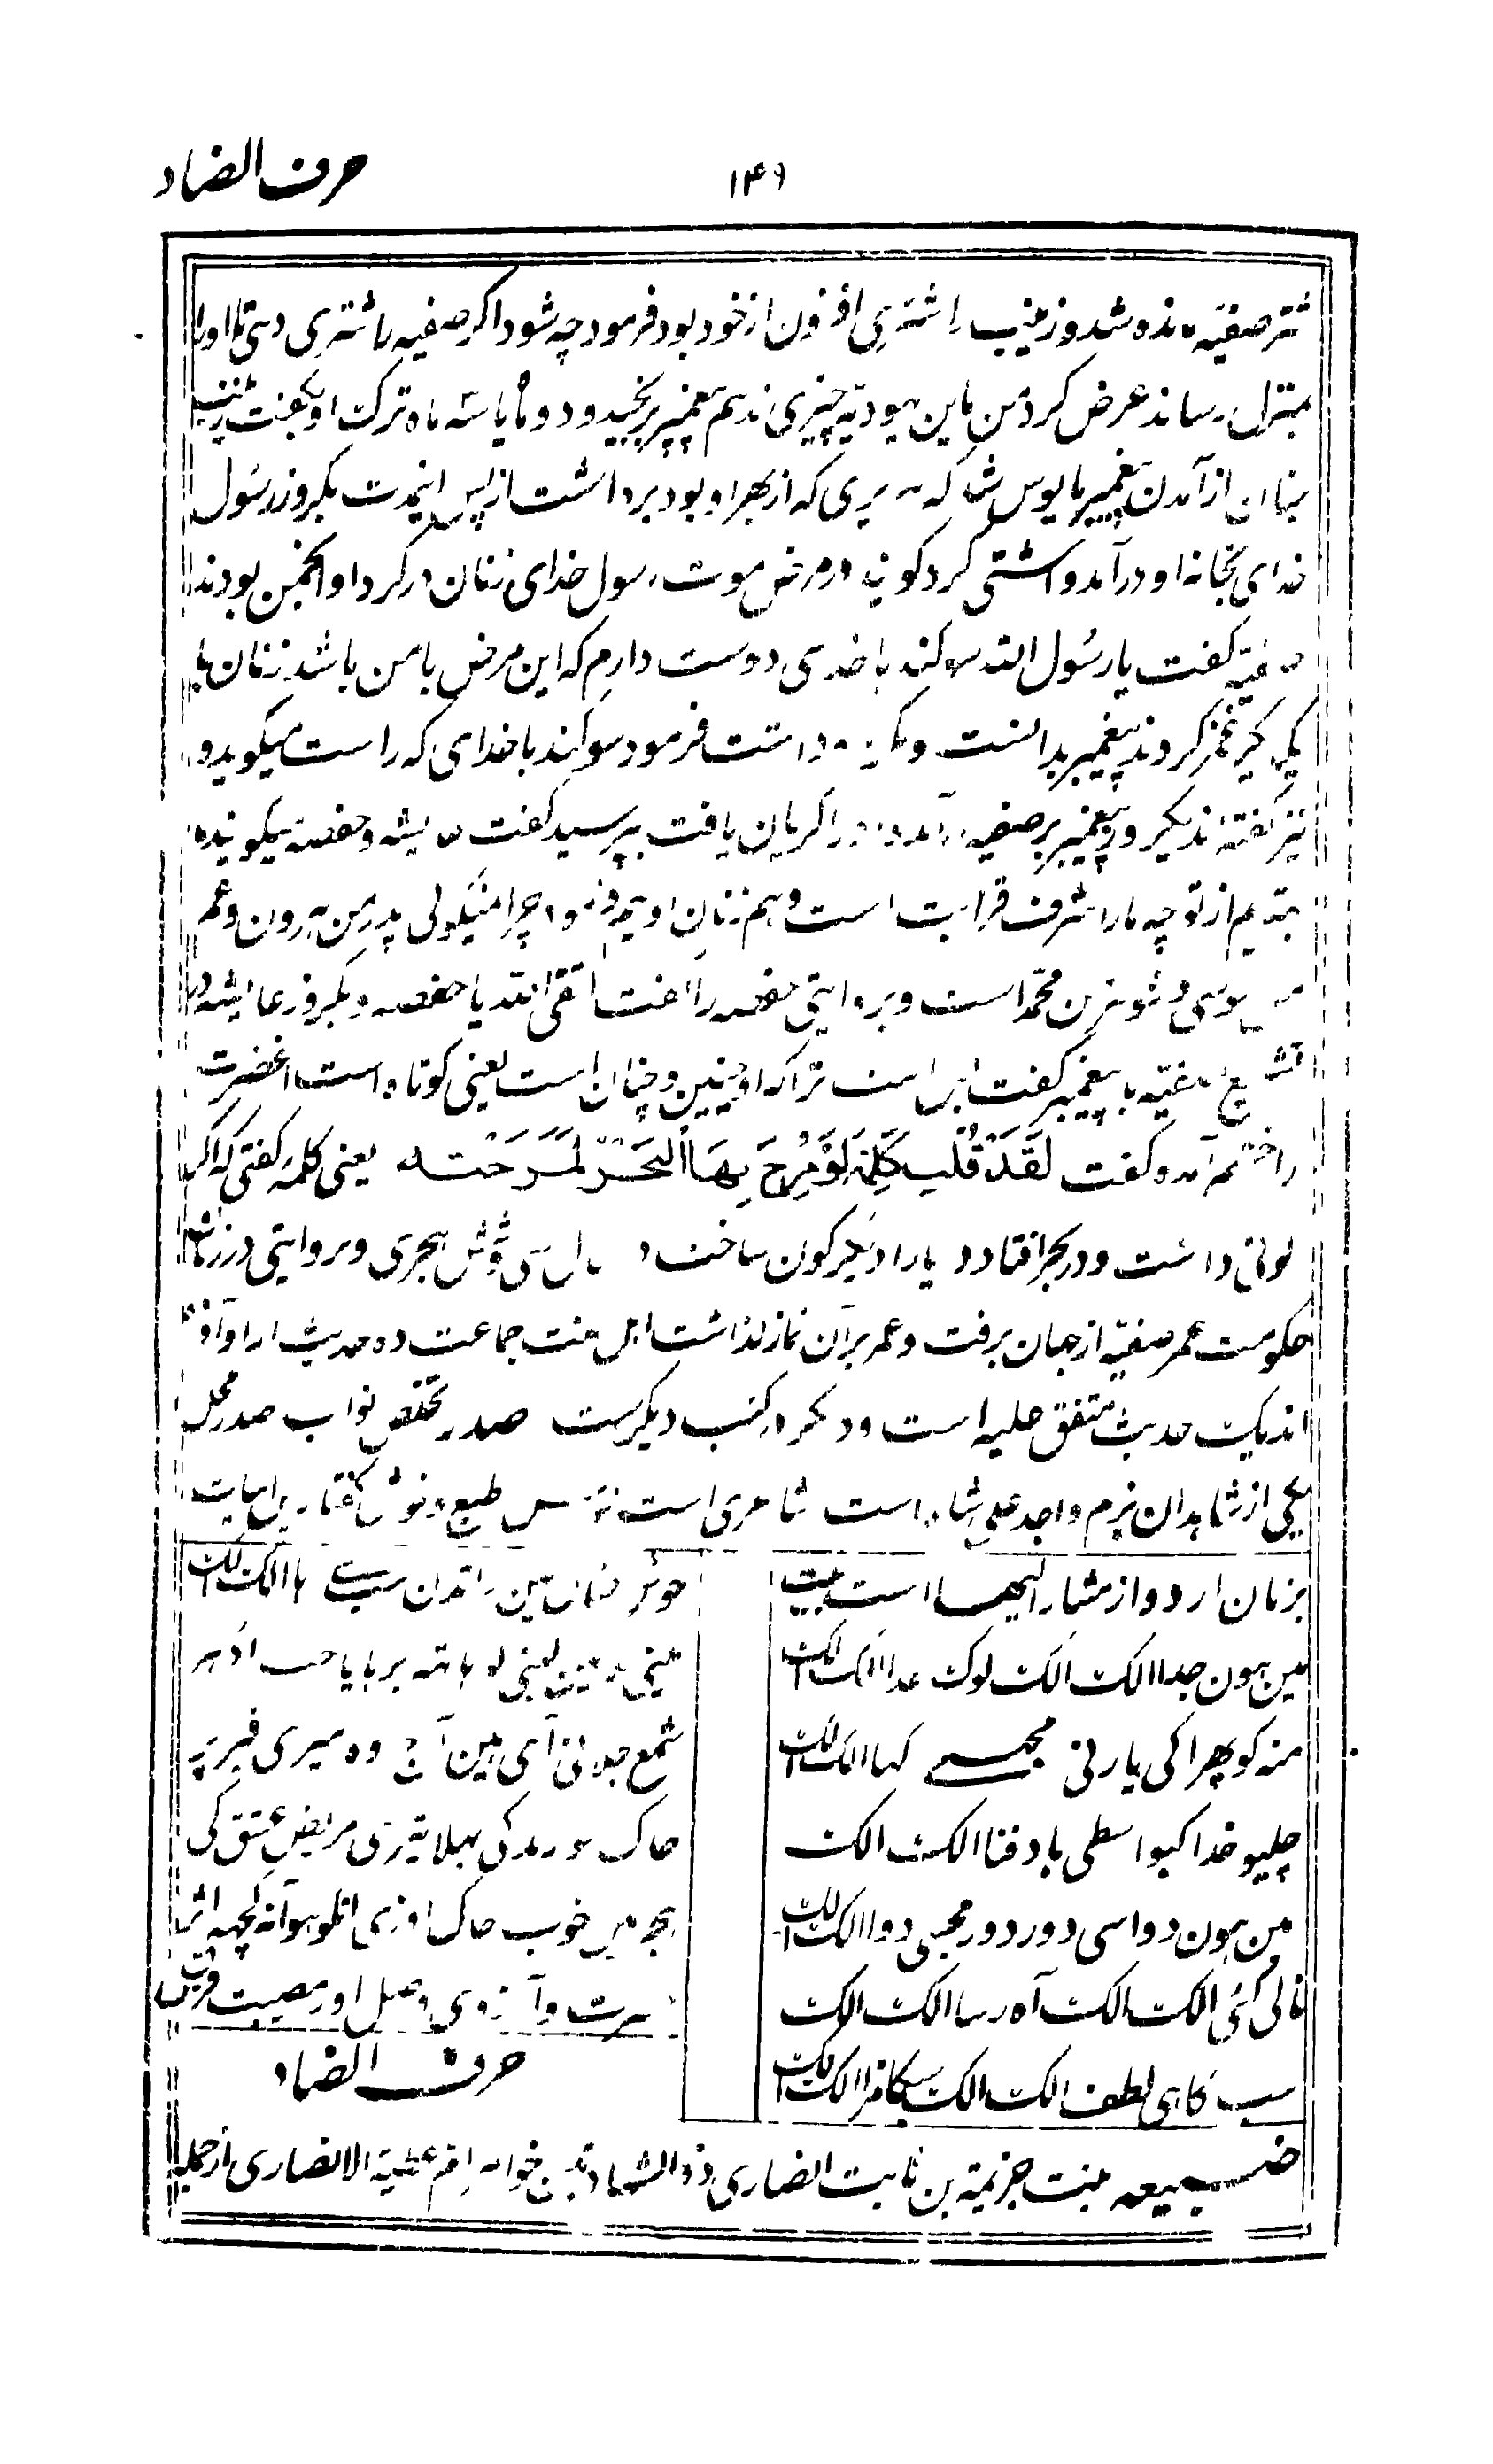 ۱۴۹
حرف الضاد
شتر صفیه مانده شد و زینب را شتری افزون از خود بود فرمود چه شود اکر صفیه را شتری دهی تا او را
بمنزل رساند عرض کرد من باین یهودیه چیزی ندهم پیغمبر برنجید و دو ماه یا سه ماه ترک او بکفت زینب
چنان از آمدن پیغمبر مایوس شد که سریری که از بهر او بود برداشت از پس اینمدت یکروز رسول
خدای بخانه او در آمد و آشتی کرد کویند در مرض موت رسول خدای زنان در کرد او انجمن بودند
صفیه کفت یا رسول الله سوکند با خدای دوست دارم که این مرض با من باشد زنان با
یکدیکر غمز کردند پیغمبر بدانست و داشت فرمود سوکند با خدای که راست میکوید و
نیز کفته‌اند یکروز پیغمبر بر صفیه در آمد و او را کریان یافت بپرسید کفت عایشه و حفصه میکویند ما
بهتریم از تو چه ما را شرف قرابت است و هم زنان اوئیم فرمود چرا نمیکوئی پدر من هرون و عم
من موسی و شوهر من محمد است و بروایتی حفصه را کفت اتقی الله یا حفصه و یکروز عایشه در
تشنیع صفیه با پیغمبر کفت بس است ترا که او چنین و چنان است یعنی کوتاه است آنحضرت
را خشم آمد و کفت لَقَدْ قُلْتِ كَلِمَةً لَوْ مُزِجَ بِهَا الْبَحْرُ لَمَزَجَتْهُ یعنی کلمه کفتی که اکر
لونی داشت و در بحر افتادی دریا را دیکرکون ساختی سال سی و شش هجری و بروایتی در زمان
حکومت عمر صفیه از جهان برفت و عمر بر آن نماز کذاشت اهل سنت جماعت ده حدیث از او آورده
اند یک حدیث متفق علیه است و دیکر در کتب دیکرست صدر تخلص نواب صدر محل
یکی از شاهدان بزم واجد علی شاه است شاعری است طبع و خوش کفتار این ابیات
بزبان اردو از مشار الیها است بیت
مین هون جدا الک الک لوک جدا الک الک
منه کو پهرا کی یار نی مجهسے کہا الک الک
چلیو خدا کیواسطی باد فنا الک الک
مین هون دوا سی دور دور مجهسی دوا الک الک
نالی کئی الک الک آه رسا الک الک
سب کا هی لطف الک الک سبکا مزا الک الک
سے ہا الک الک
یعنی لو ہاته بر ہایا جب ادهر
شمع جلانی آی ہین آج وه میری قبر پر
خاک مریض عشق کی
ہجر مین خوب خاک اوڑی انکو ہوا نہ کچهہ اثر
حسرت و آرزوی وصل اور مصیبت فراق
حرف الضاد
ضبیعه بنت خزیمة بن ثابت انصاری ذو الشهادتین خواهر ام عطیة الانصاری از جمله